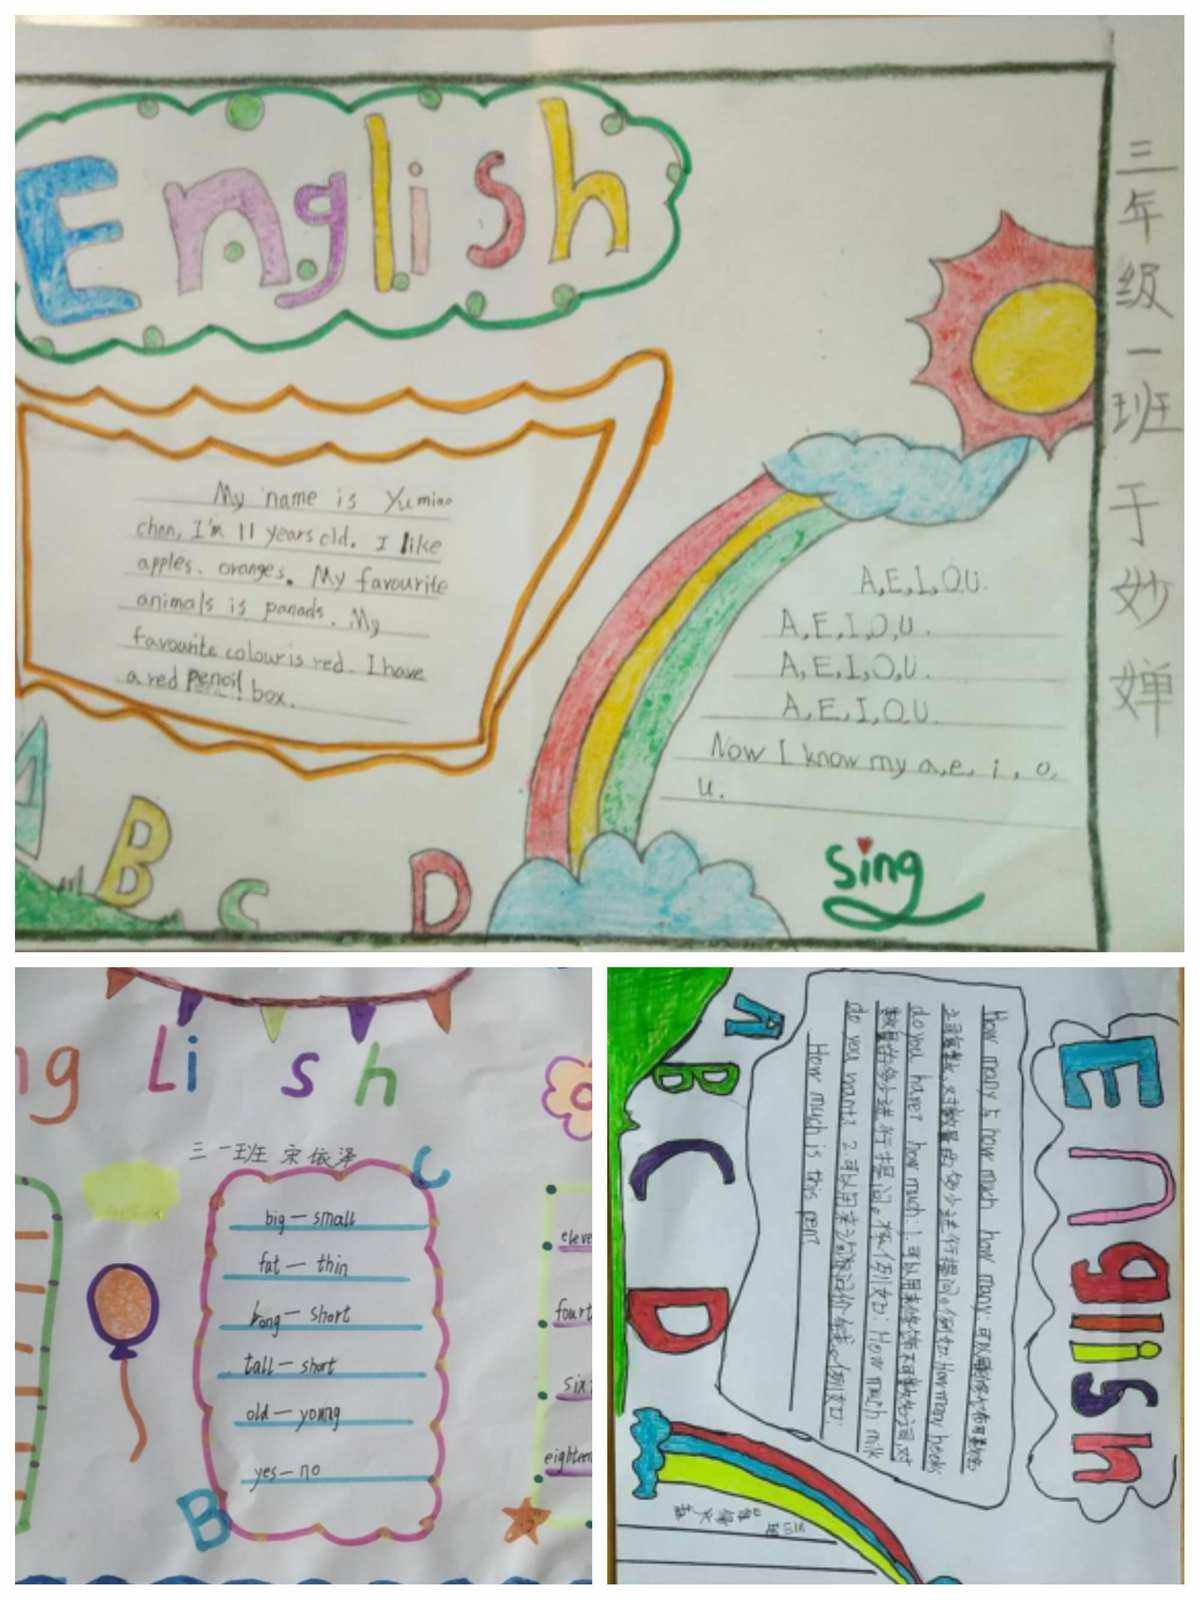 English
三年级一班于妙婵
My name is Yumiao
chan, I'm 11 years old. I like
apples. oranges. My favourite
animals is panads. My
favourite colour is red. I have
a red pencil box.
A,E,I,O,U.
A,E,I,O,U.
A,E,I,O,U.
A,E,I,O,U.
Now I know my a,e, i, o,
u.
Sing
A
B
C
D
ng Li s h
三 一班 宋依泽
C
big — small
fat — thin
long — short
tall — short
old — young
yes — no
B
eleve
fourt
six
eighteen
English
How many与how much how many:可以
之间复数,对数量的多少进行提问。例如:How many
do you have? how much: 1.可以用来修饰不可数名词,对
数量的多少进行提问。例如: How much milk
do you want? 2.可以用来询问价钱。例如:
How much is this pen?
A
B
C
D
三 班